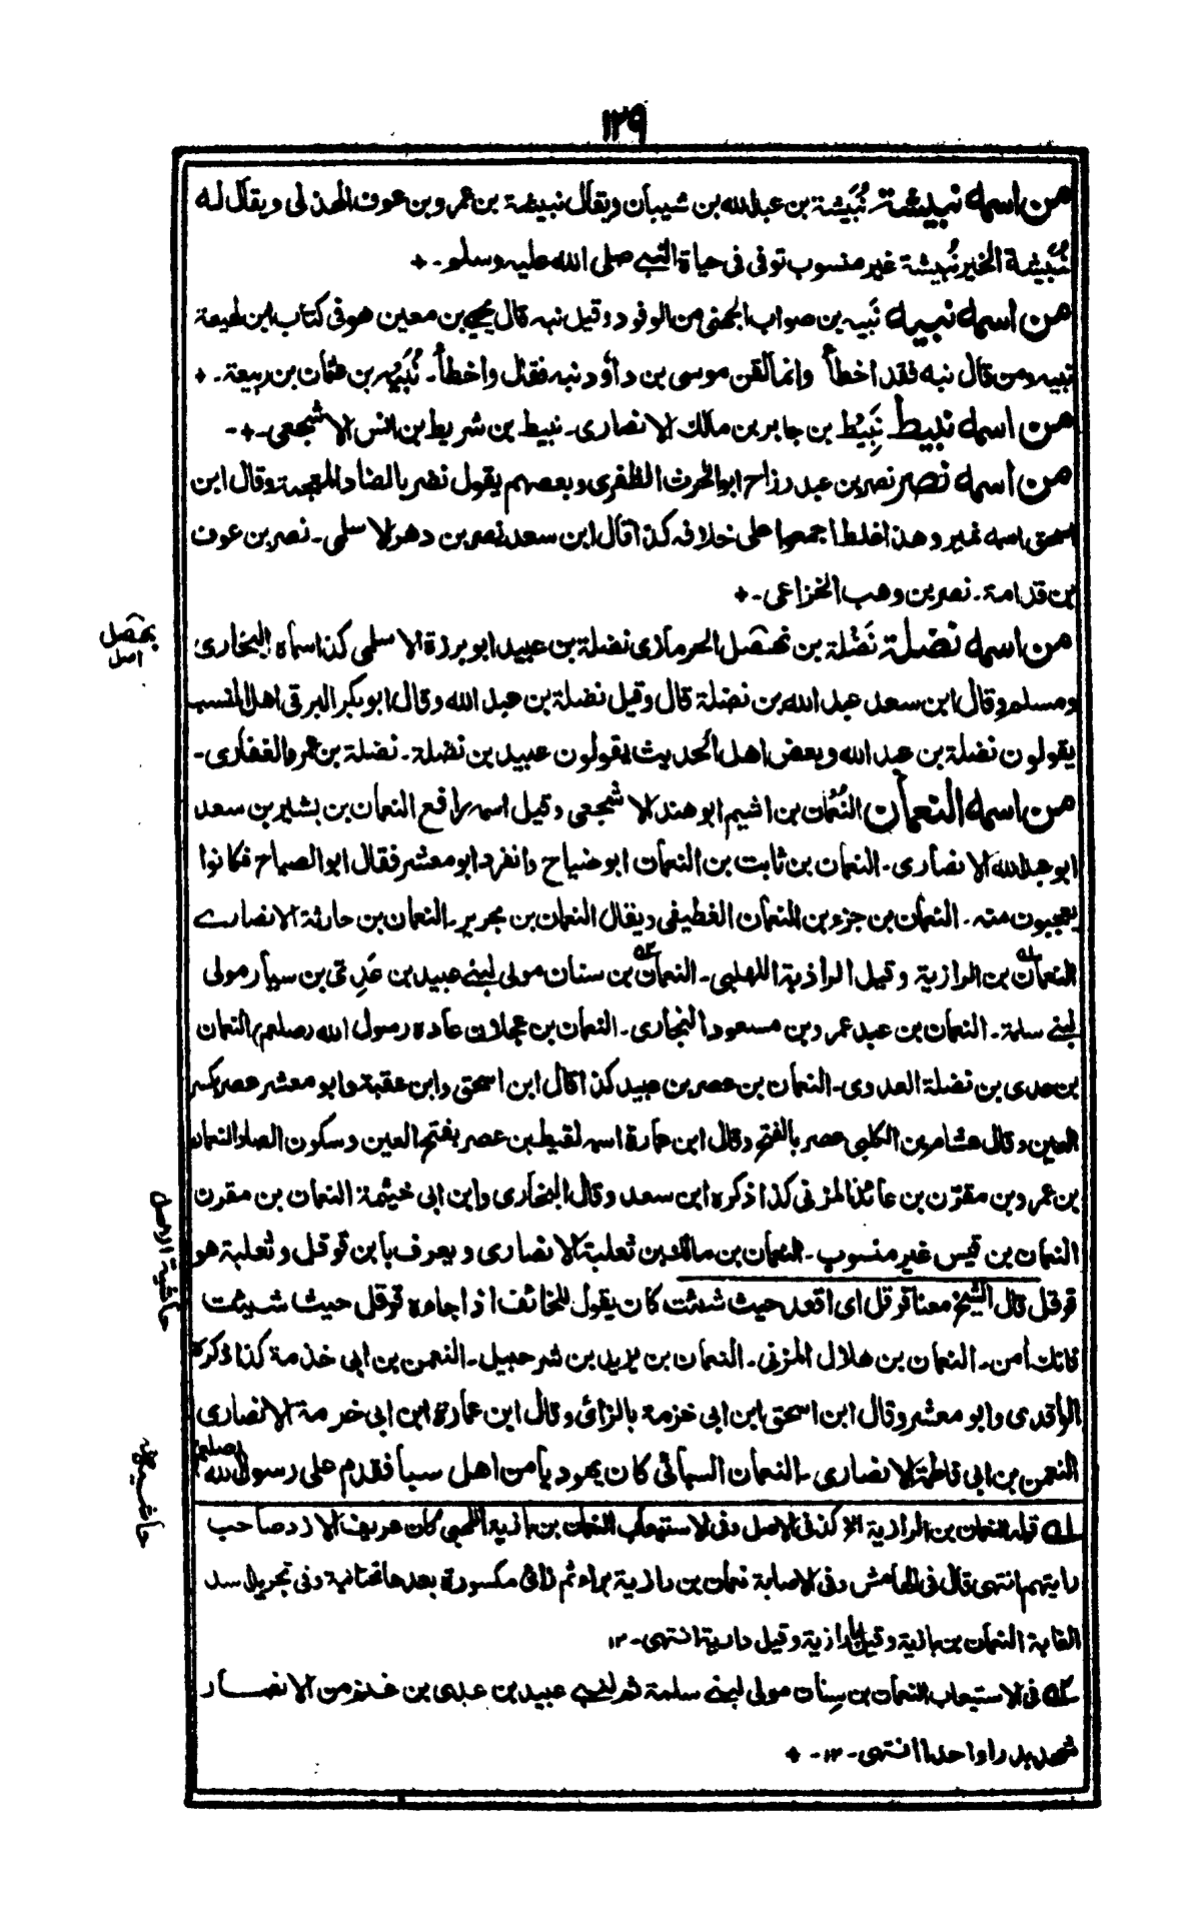 ١٢٩
من اسمه نبيشة نُبَيشة بن عبدالله بن شيبان ويقال نبيشة بن عمرو بن عوف الهذلى ويقال له
نُبَيْشة الخير نُبيشة غير منسوب توفى فى حياة النبي صلى الله عليه وسلم۔ +
من اسمه نبيه نَبيه بن صواب الجهنى من الوفود وقيل نبه قال يحيى بن معين هو فى كتاب ابن لهيعة
نبيه ومن قال نبه فقد اخطأ وانما لقن موسى بن داؤد نبه فقال واخطأ۔ نُبَيْه بن عثمان بن ربيعة۔ +
من اسمه نبيط نَبِيُط بن جابر بن مالك الانصارى۔ نبيط بن شريط بن انس الاشجعى۔ +۔
من اسمه نصر نصر بن عبد رزاح ابو الحرث الظفرى وبعضهم يقول نضر بالضاد المعجمة وقال ابن
اسحق اسمه نمير وهذا غلط اجمعوا على خلافه كذا قال ابن سعد نصر بن دهر الاسلمى۔ نصر بن عوف
بن قدامة۔ نصر بن وهب الخزاعى۔ +
من اسمه نضلة نَضْلة بن نهصل الحرمازى نضلة بن عبيد ابو برزة الاسلمى كذا سماه البخارى
ومسلم وقال ابن سعد عبد الله بن نضلة قال وقيل نضلة بن عبد الله وقال ابو بكر البرقى اهل النسب
يقولون نضلة بن عبد الله وبعض اهل الحديث يقولون عبيد بن نضلة۔ نضلة بن عمرو الغفارى۔
من اسمه النعمان النُعْمان بن اشيم ابو هند الاشجعى وقيل اسمه رافع النعمان بن بشير بن سعد
ابو عبدالله الانصارى۔ النعمان بن ثابت بن النعمان ابو ضياح وانفرد ابو معشر فقال ابو الصباح فكانوا
يعجبون منه۔ النعمان بن جزء بن النعمان الغطيفى ويقال النعمان بن مجرير۔ النعمان بن حارثة الانصارے
النعمان بن الرازية وقيل الراذية اللهبى۔ النعمان بن سنان مولى لبنے عبيد بن عَدِى بن سيار مولى
لبنے سلمة۔ النعمان بن عبد عمرو بن مسعود النجارى۔ النعمان بن عجلان عاده رسول الله (صلعم) النعمان
بن عدى بن نضلة العدوى۔ النعمان بن عصر بن عبيد كذا قال ابن اسحق وابن عقبة وابو معشر عصر بكسر
العين وقال هشام بن الكلبى عصر بالفتح وقال ابن عمارة اسمه لقيط بن عصر بفتح العين وسكون الصاد النعمان
بن عمرو بن مقرّن بن عائذ المزنى كذا ذكره ابن سعد وقال البخارى وابن ابى خيثمة النعمان بن مقرن
النعمان بن قيس غير منسوب۔ النعمان بن مالك بن ثعلبة الانصارى ويعرف بابن قوقل وثعلبة هو
قوقل قال الشيخ معنا قوقل اى اقعد حيث شئت كان يقول للخائف اذا جاءه قوقل حيث شئت
فانك اٰمن۔ النعمان بن هلال المزنى۔ النعمان بن يزيد بن شرحبيل۔ النعمن بن ابى خذمة كذا ذكره
الواقدى وابو معشر وقال ابن اسحق ابن ابى خزمة بالزائ وقال ابن عمارة ابن ابى خرمة الانصارى
النعمن بن ابى فاطمة الانصارى۔ النعمان السبائى كان يهوديا من اهل سبأ فقدم على رسول الله (صلعم)
لـه قوله النعمان بن الرازية الخ كذا فى الاصل وفى الاستيعاب النعمان بن بازية اللهبى كان عريف الازد صاحب
رايتهم انتهى قال فى الهامش وفى الاصابة نعمان بن رازية براء ثم زاى مكسورة بعدها تحتانية وفى تجريد اسد
الغابة النعمان بن بازية وقيل رازية وقيل دارية انتهى۔ ١٢
٢ـه فى الاستيعاب النعمان بن سِنان مولى لبنے سلمة ثم لبنے عبيد بن عدى بن غنم من الانصار
شهد بدرا واحدا انتهى۔ ١٢۔ +
نهصل
اصل
حاشية الاصل